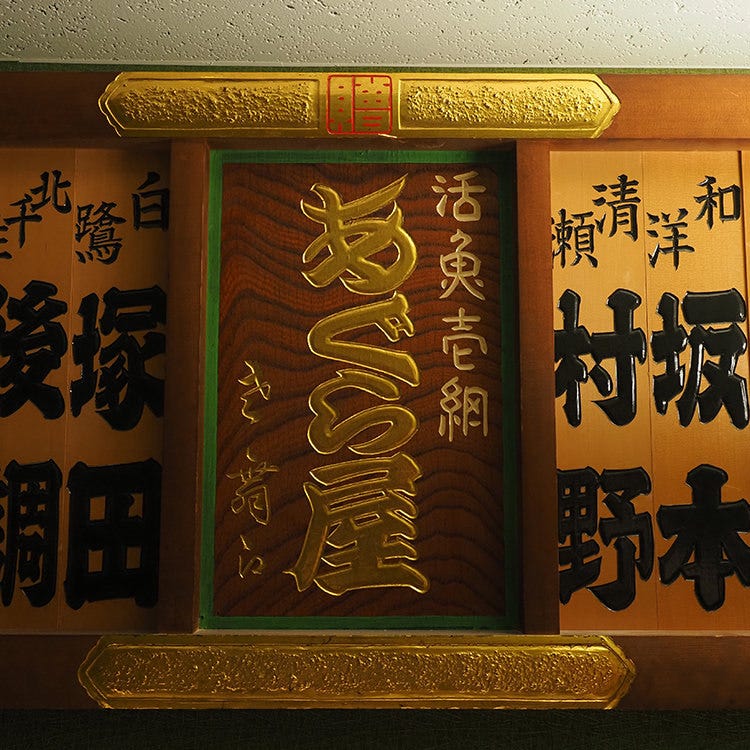 贈
和洋
坂本
清瀬
村野
活魚壱網
あぐら屋
白鷺
塚田
北千住
後調